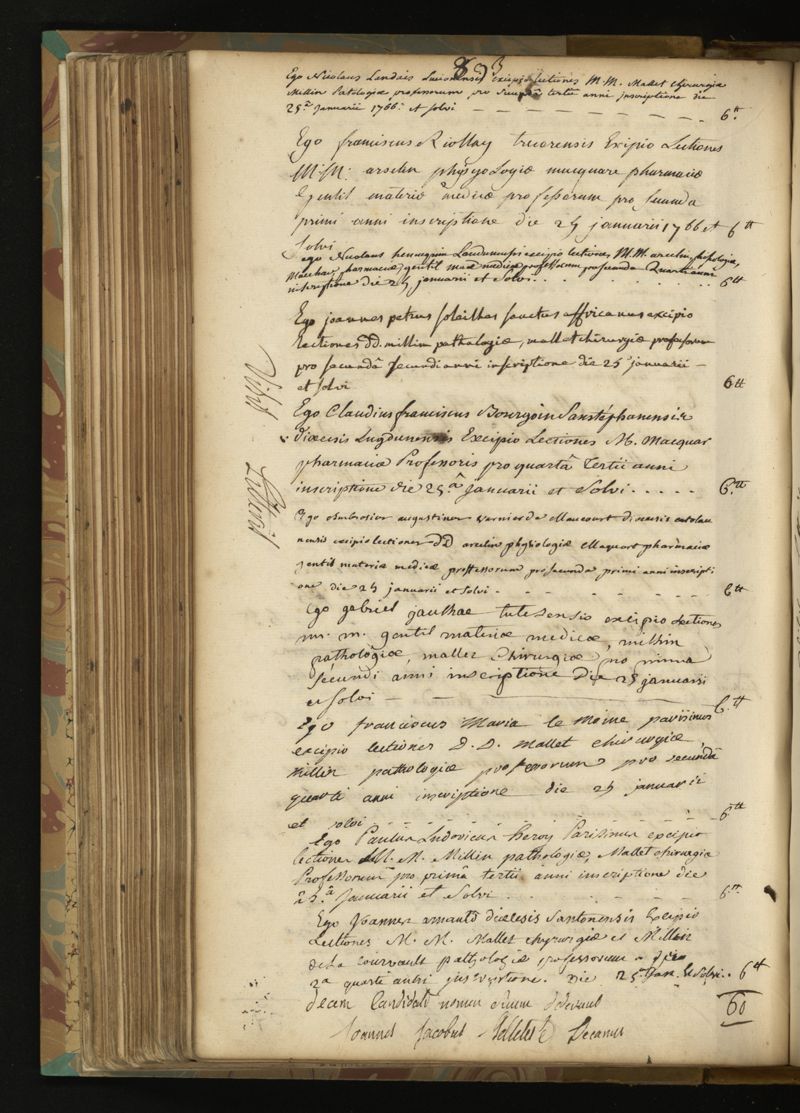 803
Ego Nicolaus Landais excipio lectiones M.M. Mallet chirurgiæ
Millin Patologiæ professorum pro secunda tertii anni inscriptione die
25.ª Januarii 1766. et solvi 6.tt
Ego franciscus Riollay trecorensis Excipio Lectiones
M.M. arcelin physyologiæ macquare pharmaciæ
gentil materiæ medicæ professorum pro secunda
primi anni inscriptione die 25 januarii 1766 et 6 tt
Solvi
ego Nicolaus excipio lectiones M.M. arcelin
pharmaciæ, gentil mat medicæ professorum pro secunda quarti anni
inscriptione die 25 januarii et Solvi 6tt
Ego joannes petrus solailhas sanctus affricanus excipio
lectiones dd. millin pathalogiæ, mallet chirurgiæ professorum
pro secundâ secundi anni inscriptione die 25 januarii
et solvi 6tt
Ego Claudius franciscus Bourgoin Sanstéphanensis
diœcesis Lugdunensis Excipio Lectiones M. Macquar
pharmaciæ Professoris pro quartâ tertii anni
inscriptione die 25.ª januarii et Solvi. 6.tt
Ego ambrosius augustinus varnier de Maucourt diœcesis catalau
nensis excipio lectiones DD arcelin physiologiæ Macquart pharmaciæ
gentil materiæ medicæ proffessorum pro secunda primi anni inscripti
one die 25 januarii et solvi 6tt
Ego gabriel jauthac tutelensis excipio lectiones
m. m. gentil materiæ medicæ, millin
pathologiæ, mallet chirurgiæ pro prima
secundi anni inscriptione die 25 januarii
et solvi 6.tt
Ego franciscus Maria le Moine parisinus
excipio lectiones D. D. Mallet chirurgiæ,
Millin pathologiæ professorum pro secundâ
quarti anni inscriptione die 25 januarii
et solvi 6tt
Ego Paulus Ludovicus heroy Parisinus excipio
lectiones M. M. Millin pathologiæ, Mallet chirurgiæ
Professorum pro primâ tertii anni inscriptione die
25.ª Januarii et Solvi 6tt
Ego Joannes arnauld diœcesis Santonensis Excipio
Lectiones M. M. Mallet chyrurgiæ et Millin
de la Courvault pathologiæ professorum
2a quarti anni inscriptione. die 25ª Jan. et Solvi. 6tt
decem Candidati nomen suum dederunt 60
Joannes Jacobus Belleteste Decanus
Nihil